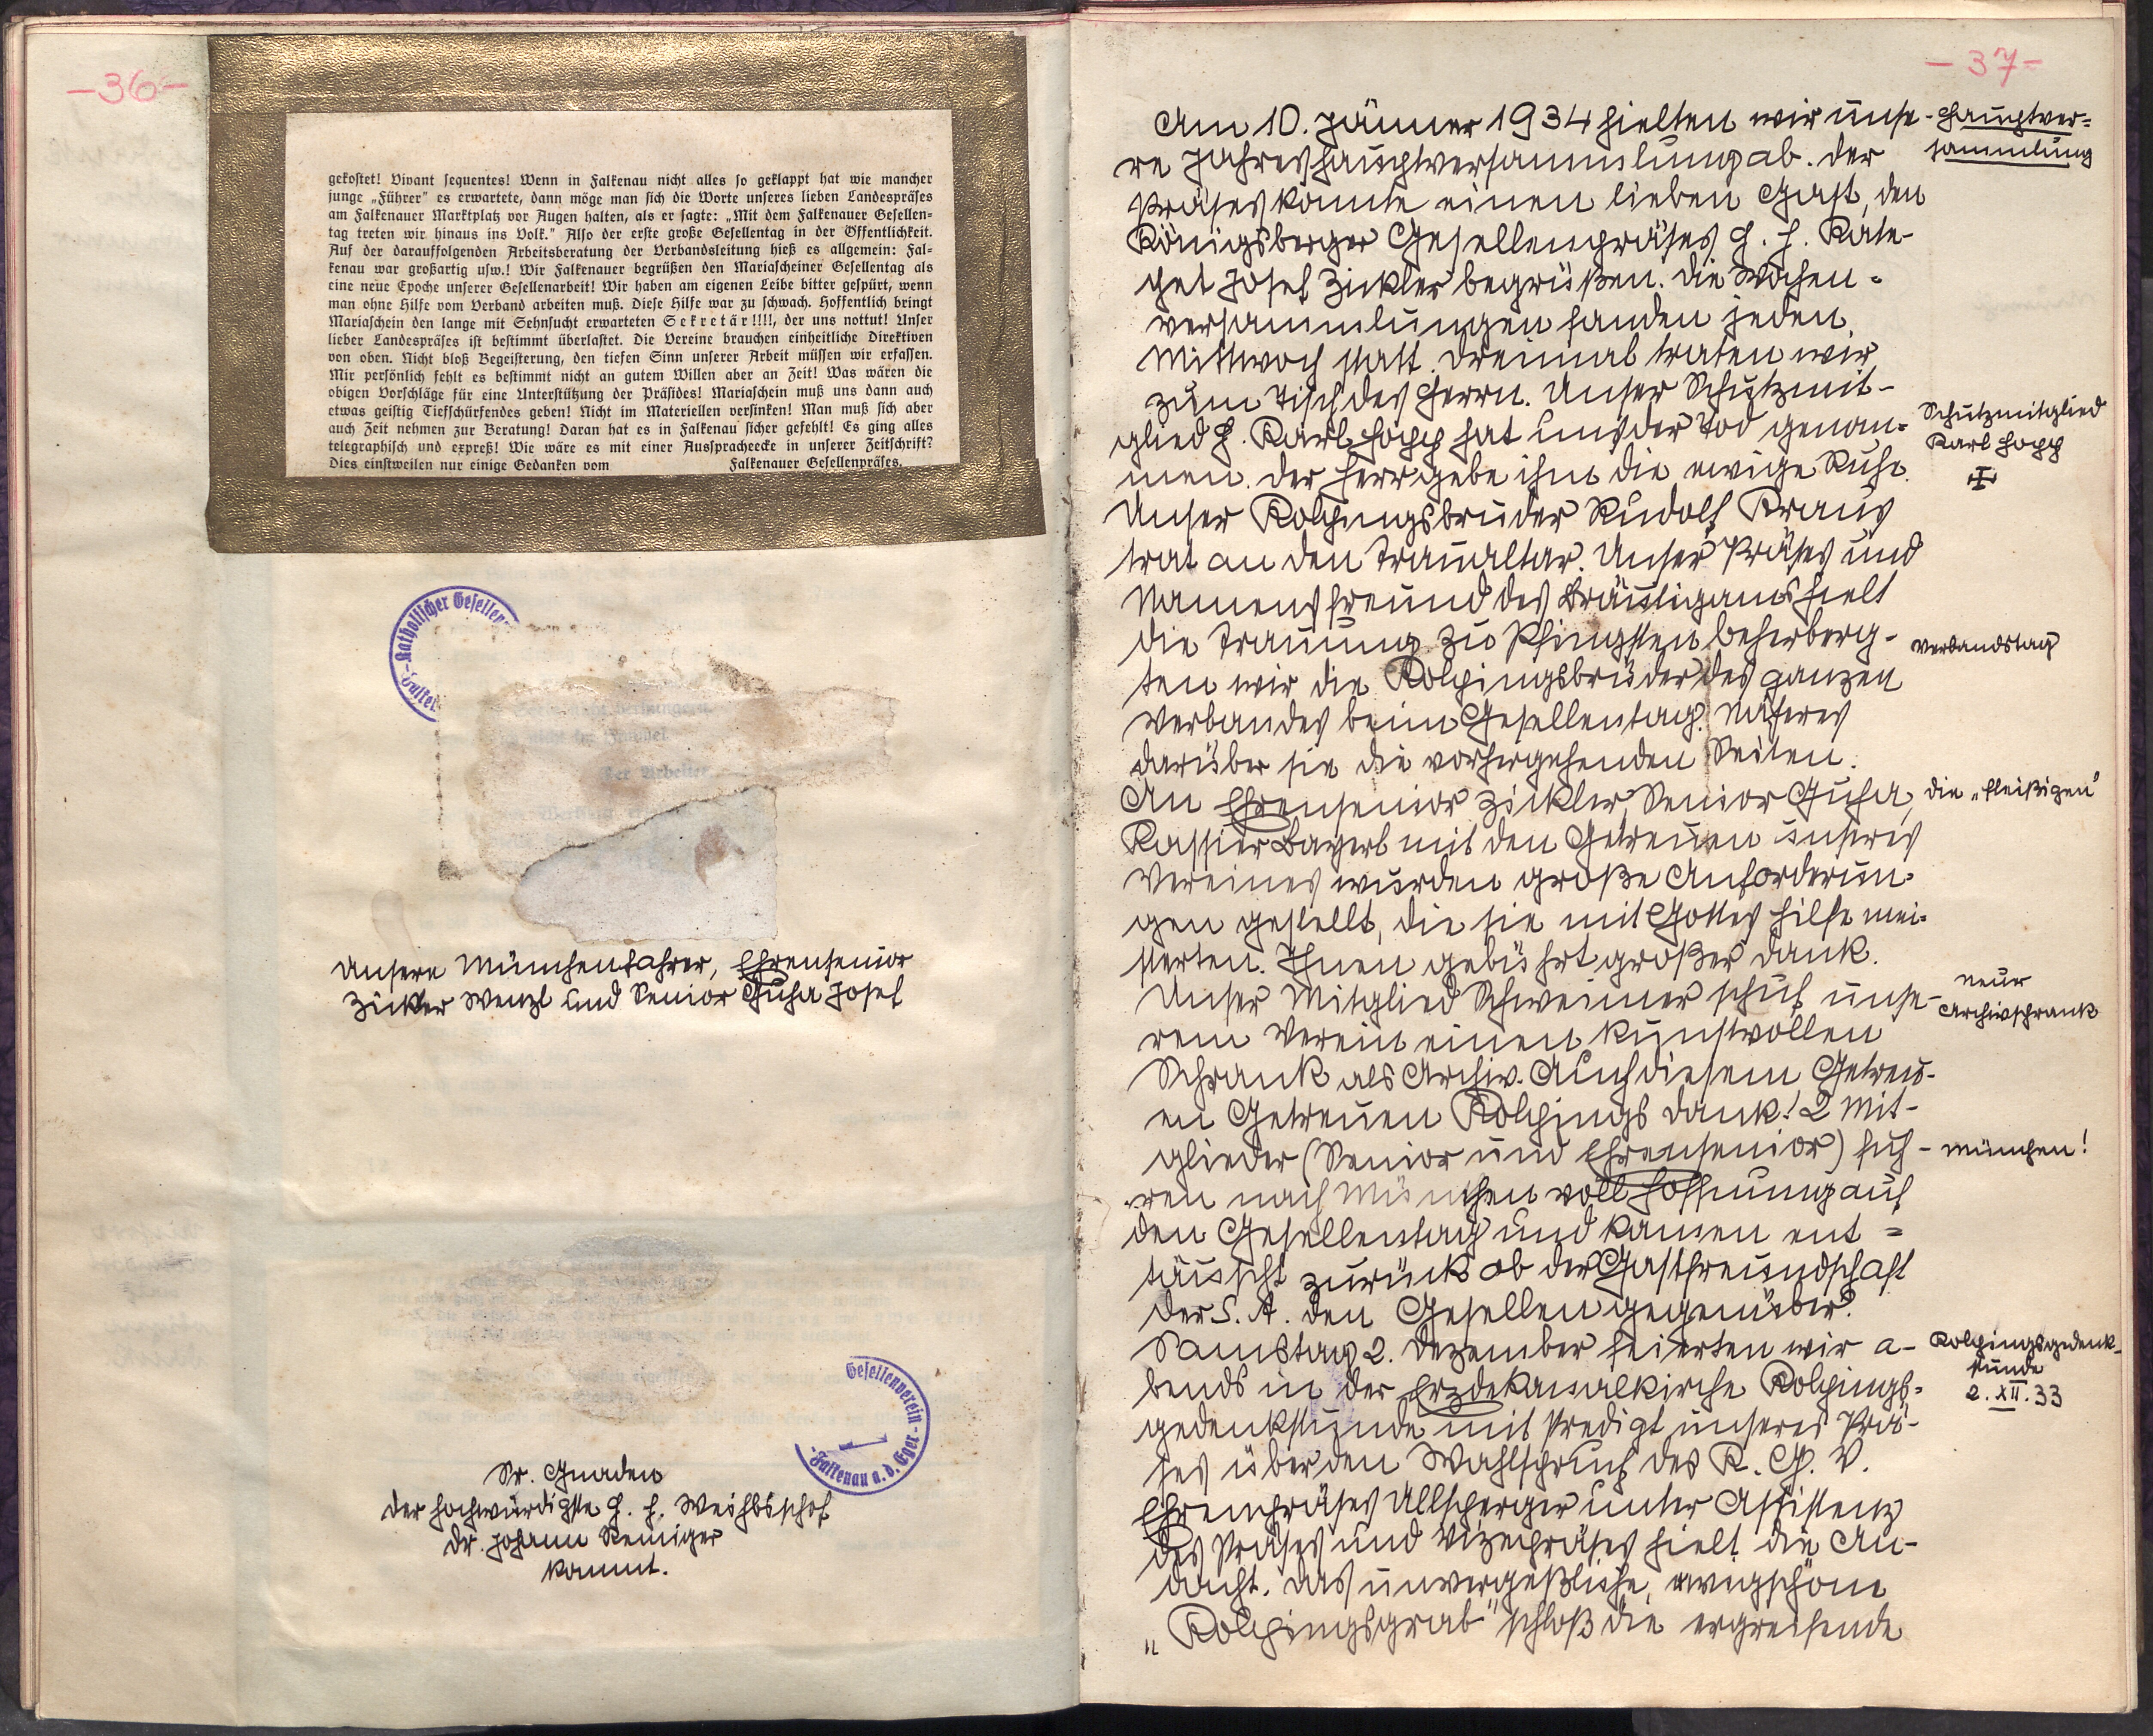 -36-
gekostet! Vivant sequentes! Wenn in Falkenau nicht alles so geklappt hat wie mancher
junge „Führer" es erwartete, dann möge man sich die Worte unseres lieben Landespräses
am Falkenauer Marktplatz vor Augen halten, als er sagte: „Mit dem Falkenauer Gesellen-
tag treten wir hinaus ins Volk." Also der erste große Gesellentag in der Öffentlichkeit.
Auf der darauffolgenden Arbeitsberatung der Verbandsleitung hieß es allgemein: Fal-
kenau war großartig usw.! Wir Falkenauer begrüßen den Mariascheiner Gesellentag als
eine neue Epoche unserer Gesellenarbeit! Wir haben am eigenen Leibe bitter gespürt, wenn
man ohne Hilfe vom Verband arbeiten muß. Diese Hilfe war zu schwach. Hoffentlich bringt
Mariaschein den lange mit Sehnsucht erwarteten Sekretär!!!!, der uns nottut! Unser
lieber Landespräses ist bestimmt überlastet. Die Vereine brauchen einheitliche Direktiven
von oben. Nicht bloß Begeisterung, den tiefen Sinn unserer Arbeit müssen wir erfassen.
Mir persönlich fehlt es bestimmt nicht an gutem Willen aber an Zeit! Was wären die
obigen Vorschläge für eine Unterstützung der Präsides! Mariaschein muß uns dann auch
etwas geistig Tiefschürfendes geben! Nicht im Materiellen versinken! Man muß sich aber
auch Zeit nehmen zur Beratung! Daran hat es in Falkenau sicher gefehlt! Es ging alles
telegraphisch und expreß! Wie wäre es mit einer Ausspracheecke in unserer Zeitschrift?
Dies einstweilen nur einige Gedanken vom Falkenauer Gesellenpräses.
Katholischer Gesellen
Falke
Unsere Münchenfahrer, Ehrensenior
Zickler Wenzl und Senior Guha Josef
Gesellenverein
Falkenau a. d. Eger
Sr. Gnaden
der hochwürdigste H. H. Weihbischof
Dr. Johann Remiger
kommt.
-37-
Am 10. Jänner 1934 hielten wir unse-
re Jahreshauptversammlung ab. Der
Präses konnte einen lieben Gast, den
Königsberger Gesellenpräses H. H. Kate-
chet Josef Zickler begrüßen. Die Wochen-
versammlungen fanden jeden
Mittwoch statt. Dreimal traten wir
zum Tisch des Herrn. Unser Schutzmit-
glied H. Karl Hopp hat uns der Tod genom-
men. Der Herr gebe ihm die ewige Ruhe.
Unser Kolpingsbruder Rudolf Kraus
trat an den Traualtar. Unser Präses und
Namensfreund des Bräutigams hielt
die Trauung. Zu Pfingsten beherberg-
ten wir die Kolpingsbrüder des ganzen
Verbandes beim Gesellentag. Näheres
darüber sie die vorhergehenden Seiten.
An Ehrensenior Zickler, Senior Guha,
Kassier Bayerl mit den Getreuen unseres
Vereines wurden große Anforderun-
gen gestellt, die sie mit Gottes Hilfe mei-
sterten. Ihnen gebührt großer Dank.
Unser Mitglied Schweimer schuf unse-
rem Verein einen kunstvollen
Schrank als Archiv. Auch diesem Getreu-
en Getreuen Kolpings Dank! 2 Mit-
glieder (Senior und Ehrensenior) fuh-
ren nach München voll Hoffnung auf
den Gesellentag und kamen ent=
täuscht zurück ob der Gastfreundschaft
der S. A. den Gesellen gegenüber.
Samstag 2. Dezember feierten wir a-
bends in der Erzdekanalkirche Kolpings-
gedenkstunde mit Predigt unseres Prä-
ses über den Wahlspruch des K. G. V.
Ehrenpräses Ullsperger unter Assistenz
des Präses und Vizepräses hielt die An-
dacht. Das unvergeßliche, ewigschöne
„Kolpingsgrab" schloß die ergreifende
Hauptver=
sammlung
Schutzmitglied
Karl Hopp
Verbandstag
die „fleißigen"
neuer
Archivschrank
München!
Kolpingsgedenk-
stunde
2. XII. 33